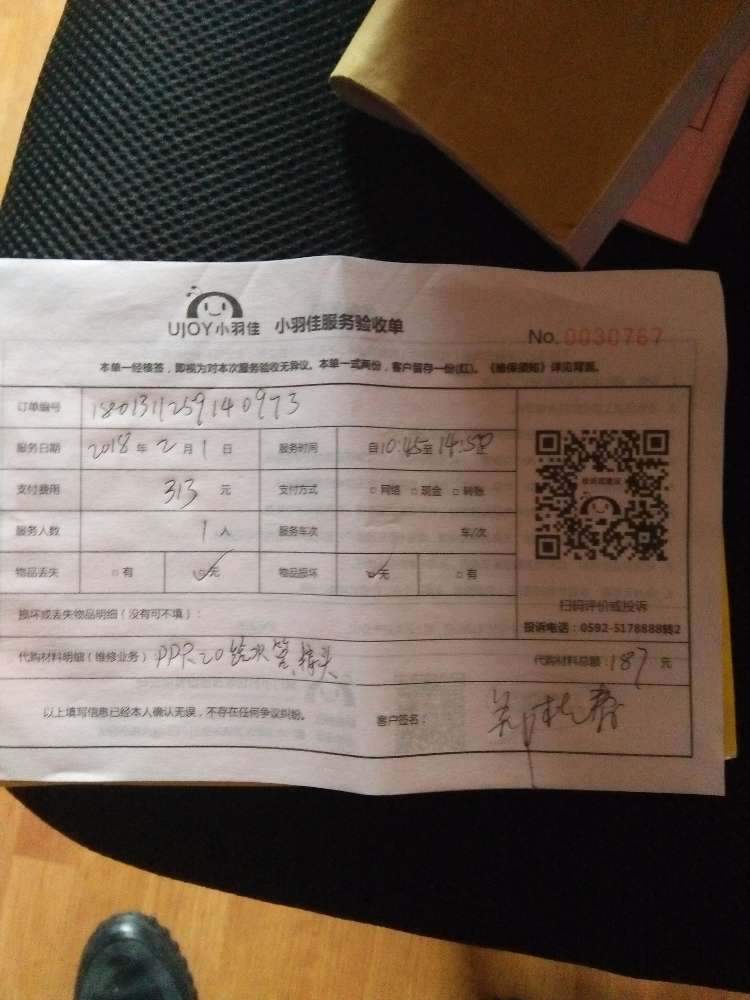 UJOY小羽佳 小羽佳服务验收单
No. 0030767
本单一经核签，即视为对本次服务验收无异议。本单一式两份，客户留存一份(红)。《维保须知》详见背面。
订单编号 1801311259140973
服务日期 2018年2月1日 服务时间 自10:45至14:50
支付费用 313元 支付方式 □网络 □现金 □转账
服务人数 1人 服务车次 车/次
物品丢失 □有 ☑无 物品损坏 ☑无 □有
扫码评价或投诉
投诉电话：0592-5178888转2
损坏或丢失物品明细（没有可不填）：
代购材料明细（维修业务） PPR20给水管、接头 代购材料总额：187元
以上填写信息已经本人确认无误，不存在任何争议纠纷。 客户签名：